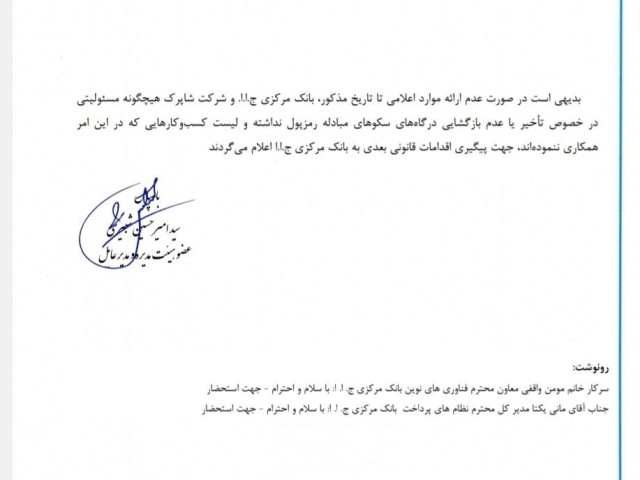 بدیهی است در صورت عدم ارائه موارد اعلامی تا تاریخ مذکور، بانک مرکزی ج.ا.ا. و شرکت شاپرک هیچگونه مسئولیتی
در خصوص تأخیر یا عدم بازگشایی درگاه‌های سکوهای مبادله رمزپول نداشته و لیست کسب‌وکارهایی که در این امر
همکاری ننموده‌اند، جهت پیگیری اقدامات قانونی بعدی به بانک مرکزی ج.ا.ا اعلام می‌گردند
سید امیر حسین
عضو هیئت مدیره و مدیر عامل
رونوشت:
سرکار خانم مومن واقفی معاون محترم فناوری های نوین بانک مرکزی ج. ا. ا: با سلام و احترام - جهت استحضار
جناب آقای مانی یکتا مدیر کل محترم نظام های پرداخت بانک مرکزی ج. ا. ا: با سلام و احترام - جهت استحضار